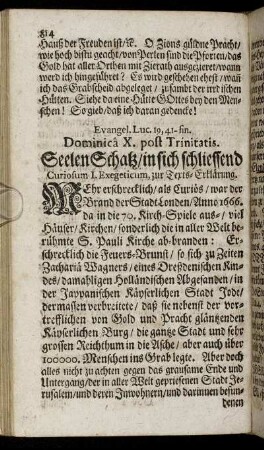 814
Hauß der Freuden ist/ꝛc. O Zions güldne Pracht/
wie hoch bistu geacht/von Perlen sind die Pforten/das
Gold hat aller Orthen mit Zierath ausgezieret/wann
werd ich hingeführet? Es wird geschehen ehest/wañ
ich das Grabscheid abgeleget/ zusambt der irrdischen
Hütten. Siehe da eine Hütte GOttes bey den Men-
schen! So gieb/daß ich daran gedencke!
Evangel. Luc. 19, 41-fin.
Dominicâ X. post Trinitatis.
Seelen Schatz/in sich schliessend
Curiosum I. Exegeticum, zur Texts-Erklärung.
MEhr erschrecklich/als Curiös/war der
Brand der Stadt Londen/Anno 1666.
da in die 70. Kirch-Spiele aus-/ viel
Häuser/ Kirchen/sonderlich die in aller Welt be-
rühmte S. Pauli Kirche ab-branden: Er-
schrecklich die Feuers-Brunst/ so sich zu Zeiten
Zachariä Wagners/eines Dreßdenischen Kin-
des/damahligen Holländischen Abgesanden/in
der Jappanischen Käyserlichen Stadt Jedo/
dermassen verbreitete/ daß sie nebenst der vor-
trefflichen von Gold und Pracht gläntzenden
Käyserlichen Burg/ die gantze Stadt und sehr
grossen Reichthum in die Asche/ aber auch über
100000. Menschen ins Grab legte. Aber doch
alles nicht zu achten gegen das grausame Ende und
Untergang/der in aller Welt gepriesenen Stadt Je-
rusalem/und deren Inwohnern/und darinnen befun-
denen